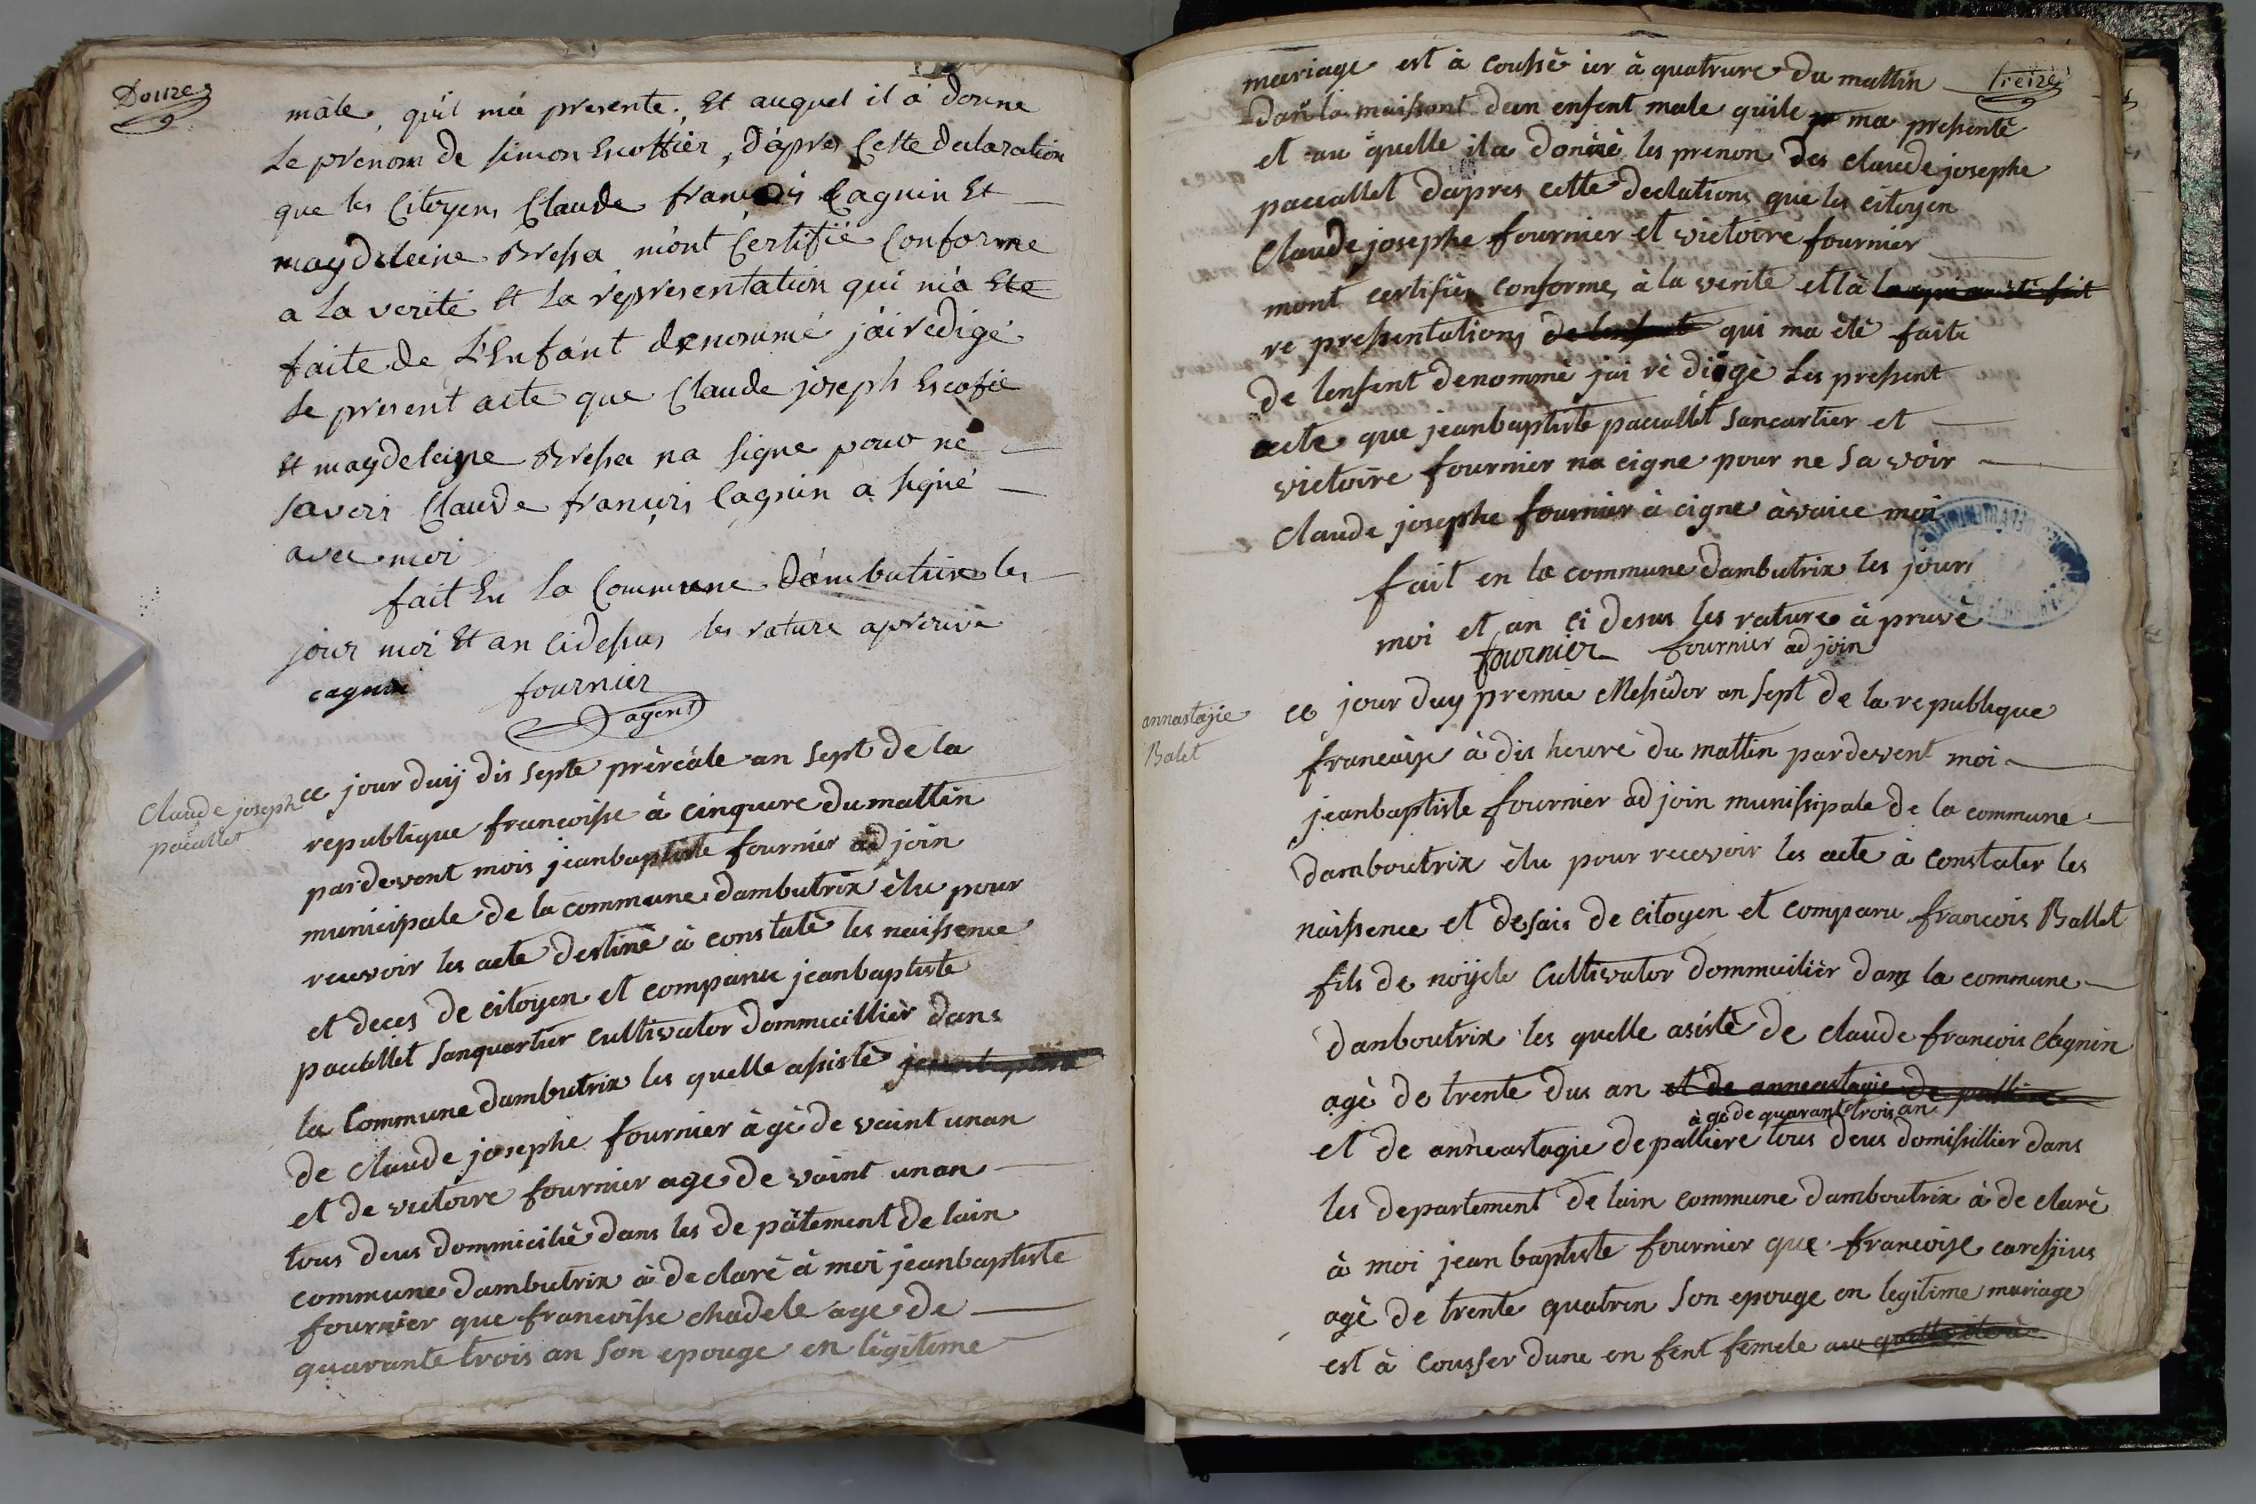 Douze
mâle, qu'il m'a presenté, Et auquel il a donné
Le prenom de simon Escoffier, d'âpres Cette declaration
que les Citoyens Claude françois Cagnin Et
magdeleine Bressa m'ont Certifié Conforme
a La verité Et la répresentation qui m'a Ete
faite de L'Enfant denommé j'ai redigé
Le present acte que Claude joseph Escofié
Et magdeleine Bressa na signé pour ne
savoir Claude françois Cagnin a signé
avec moi
fait En la Commune d'ambutrix les
jour moi Et an cidessus les rature aprouvé
cagnin fournier
agent
Claude joseph
pacallet
ce jour duy dis septe prèréale an sept de la
republique francoisse à cinqure du mattin
pardevent mois jeanbaptiste fournier adjoin
municipale de la commune dambutrix élu pour
recevoir les acte destiné à constaté les naissence
et deces de citoyen et comparu jeanbaptiste
pacallet sanquartier cultivator dommicillièr dans
la Commune dambutrix les quelle assistè
de claude josephe fournier àgè de vaint unan
et de victoire fournier age de vaint unan
tous deus dommiciliè dans les depâtement de lain
commune dambutrix à declarè à moi jeanbaptiste
fournier que francoisse chadele age de
quarante trois an son epouge en lègitime
treize
mariage est à coussè ier à quatrure du mattin
Dan la maissont dun enfent male quile ma pressentè
et au quelle ila donnè les prenon des claude josephe
paccallet dapres cette declations que les citoyen
Claude josephe fournier et victoire fournier
mont certifiés conforme à la veritè et là
re pressentations qui ma étè faite
de lenfent denommè jai rè digè Les pressent
acte que jeanbaptiste paccallet sancartier et
victoire fournier na cigne pour ne sa voir
Claude josephe fournier à cigne àvaice moi
fait en la commune dambutrix les jour
moi et an ci desus les rature à pruvè
fournier fournier adjoin
annastagie
Balet
ce jour duy premie Messidor an sept de la republique
francaise à dis heure du mattin pardevent moi
jeanbaptiste fournier adjoin munissipale de la commune
damboutrix èlu pour recevoir les acte à constater les
naissence et desais de citoyen et comparu francois Ballet
fils de Cultivator dommicilièr dans la commune
damboutrix les quelle asistè de claude francois Cagnin
agè de trente dus an et de anneastagie de palliere
à gè de quarante trois an
et de anneastagie depalliere tous deus domissillier dans
les departement de lain commune damboutrix à declarè
à moi jean baptiste fournier que francoise
agè de trente quatren son epouge en legitime mariage
est à cousser dune en fent femele